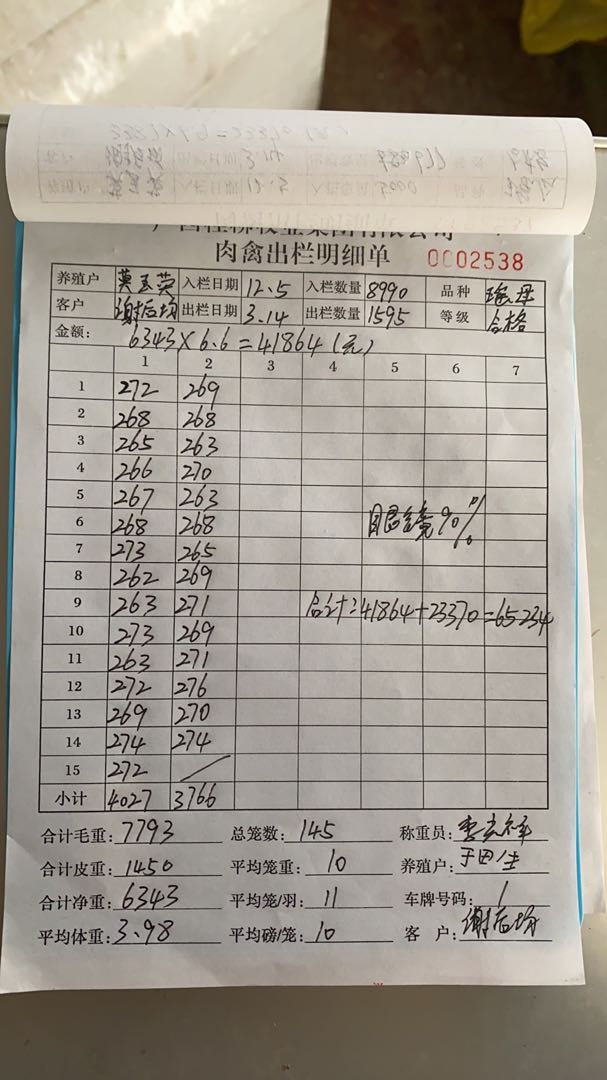 肉禽出栏明细单 0002538
养殖户 入栏日期 12.5 入栏数量 8990 品种 瑶母
客户 谢后场 出栏日期 3.14 出栏数量 1595 等级 合格
金额: 6343×6.6=41864(元)
1 2 3 4 5 6 7
1 272 269
2 268 268
3 265 263
4 266 270
5 267 263
6 268 268
7 273 265
8 262 269
9 263 271
10 273 269
11 263 271
12 272 276
13 269 270
14 274 274
15 272 /
90%
合计:41864+23370=65234
小计 4027 3766
合计毛重: 7793 总笼数: 145 称重员:
合计皮重: 1450 平均笼重: 10 养殖户:
合计净重: 6343 平均笼/羽: 11 车牌号码: 1
平均体重: 3.98 平均磅/笼: 10 客户: 谢后场